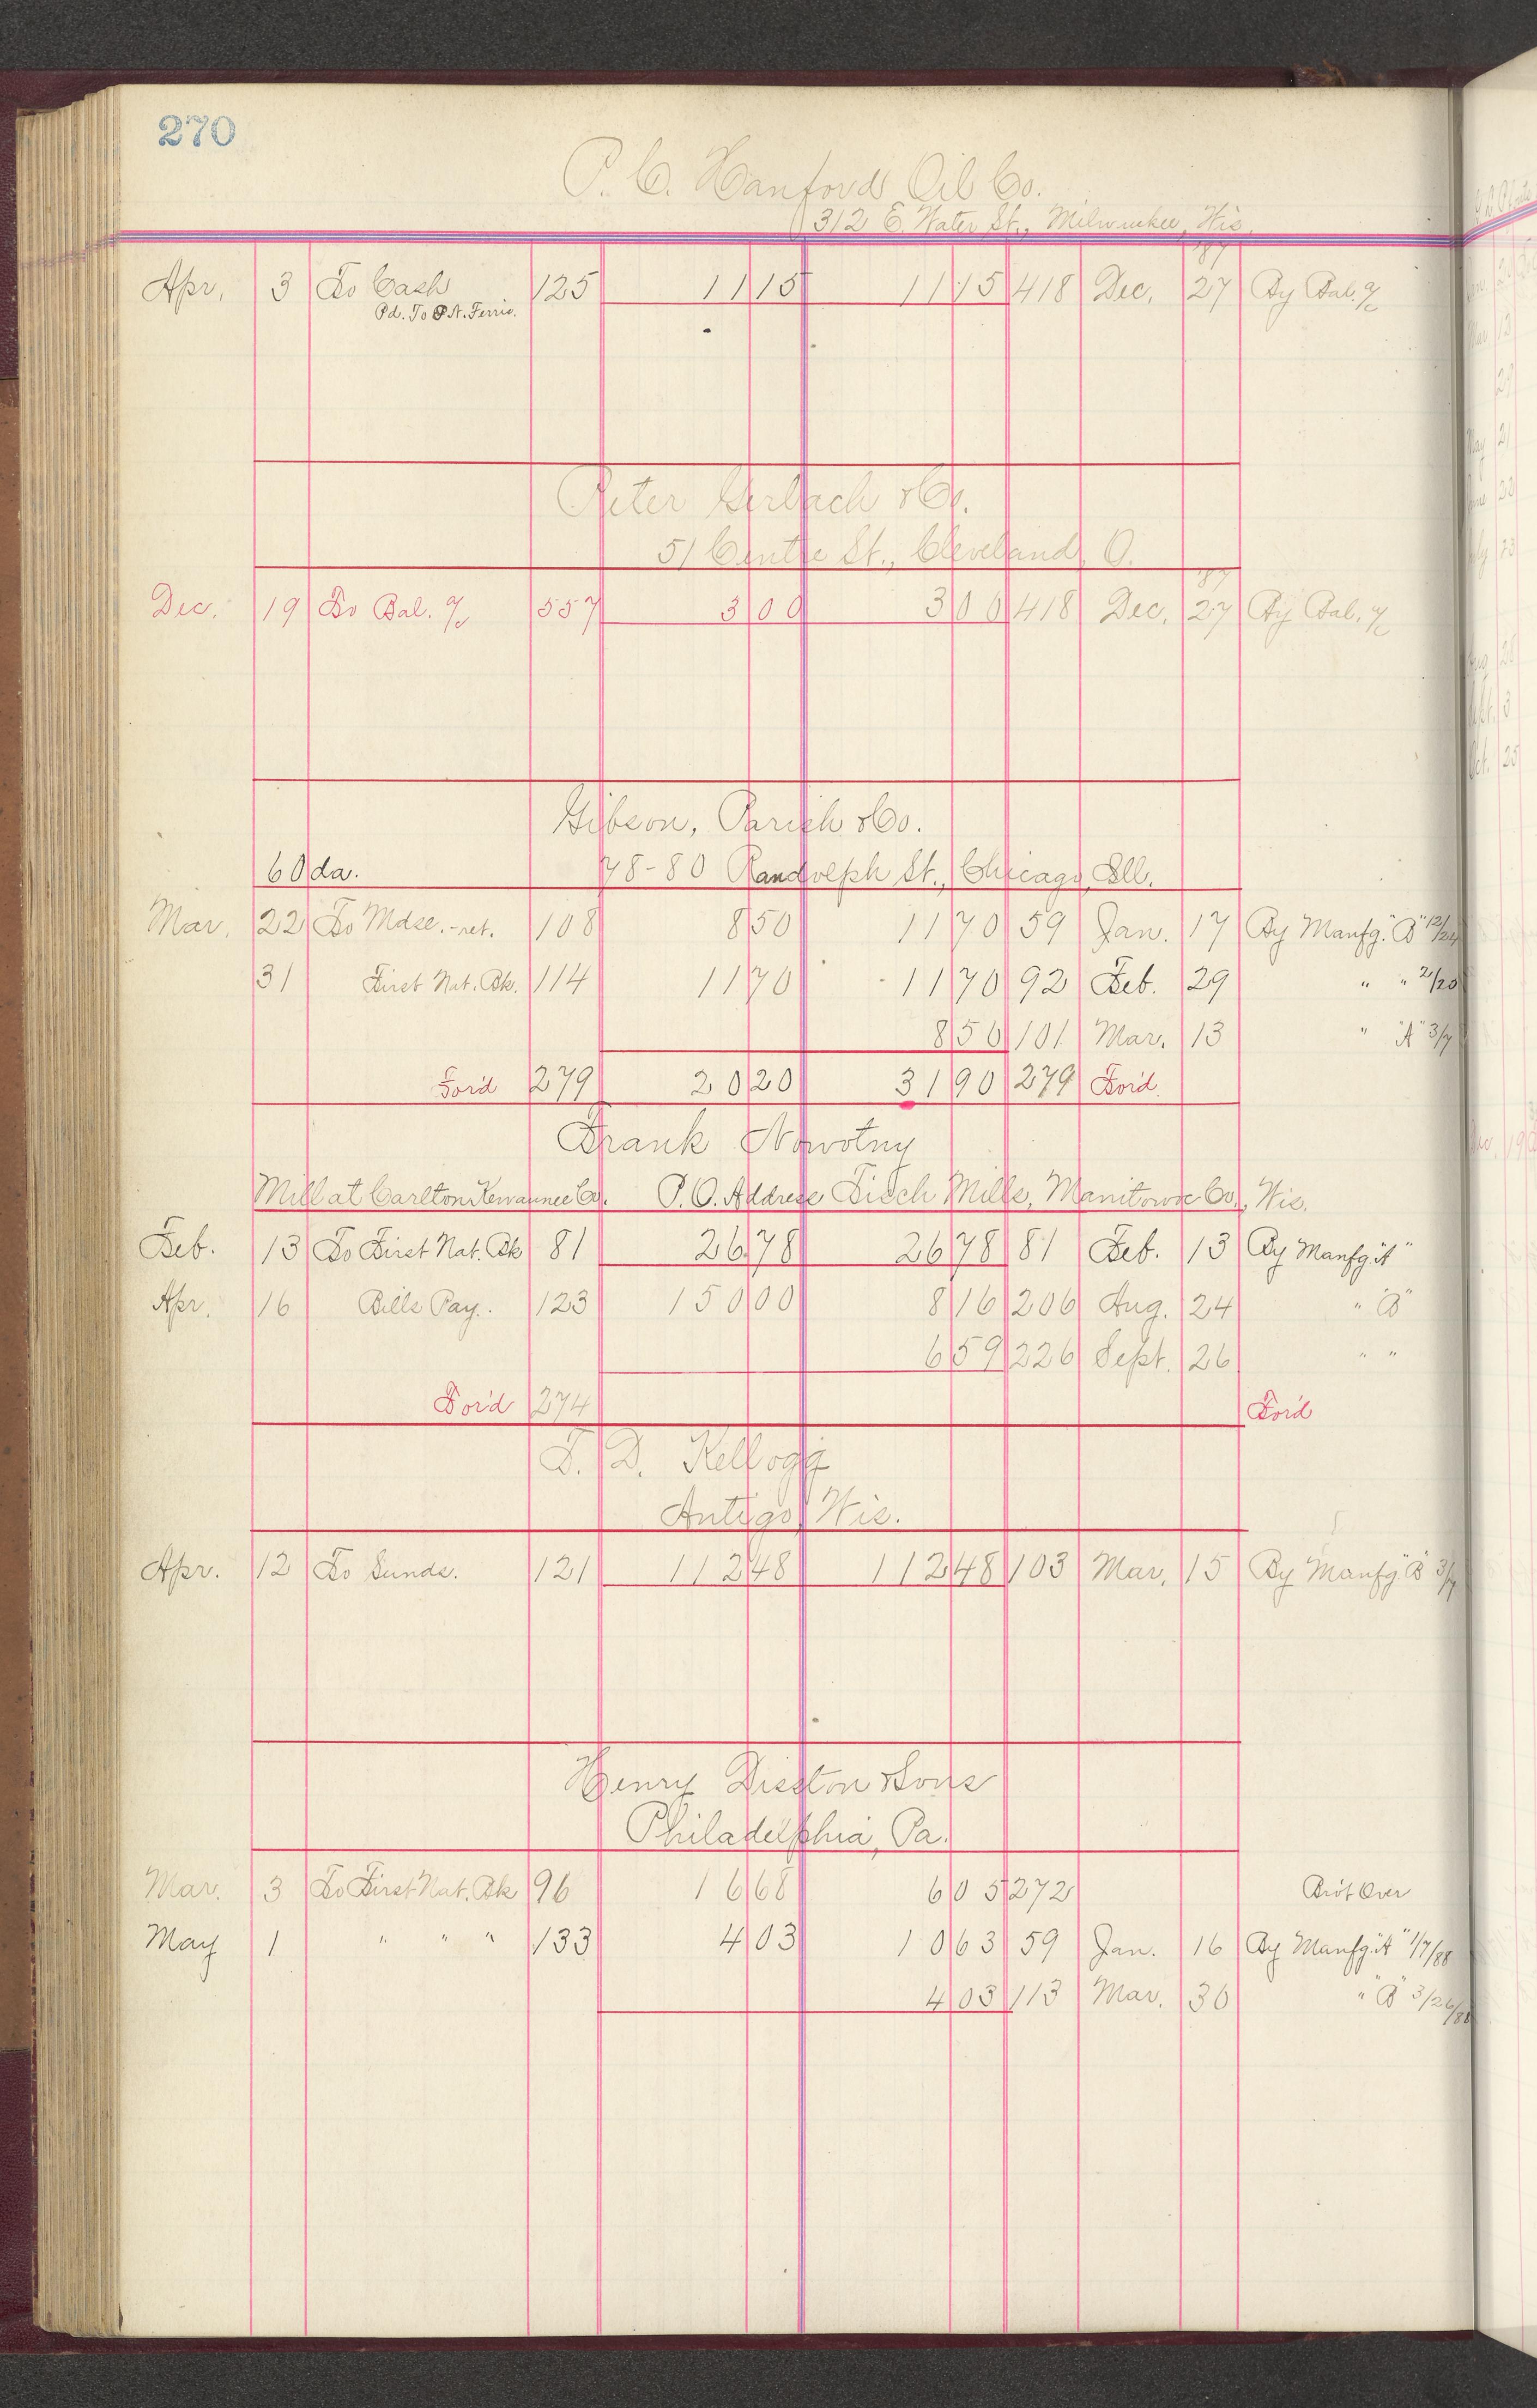 270
P. C. Hanford Oil Co.
312 E. Water St., Milwaukee, Wis.
'87
Apr. 3 To Cash 125 11 15 11 15 418 Dec. 27 By Bal. a/c
Pd. To
Peter Gerlach & Co.
51 Centre St., Cleveland, O.
'87
Dec. 19 To Bal. a/c 557 3 00 3 00 418 Dec. 27 By Bal. a/c
Gibson, Parish & Co.
60 da. 78-80 Randolph St., Chicago, Ill.
Mar. 22 To Mdse. - ret. 108 8 50 11 70 59 Jan. 17 By Manfg. "B" 12/24
31 First Nat. Bk. 114 11 70 11 70 92 Feb. 29 " " 2/20
8 50 101 Mar. 13 " "A" 3/7
For'd 279 20 20 31 90 279 For'd
Frank Nowotny
Mill at Carlton Kewaunee Co. P. O. Address Tisch Mills, Manitowoc Co., Wis.
Feb. 13 To First Nat. Bk 81 26 78 26 78 81 Feb. 13 By Manfg. "A"
Apr. 16 Bills Pay. 123 150 00 8 16 206 Aug. 24 " "B"
6 59 226 Sept. 26 " "
For'd 274 For'd
T. D. Kellogg
Antigo, Wis.
Apr. 12 To Sunds. 121 112 48 112 48 103 Mar. 15 By Manfg "B" 3/7
Henry Disston & Sons
Philadelphia, Pa.
Mar. 3 To First Nat. Bk 96 16 68 6 05 272 Bro't Over
May 1 " " " 133 4 03 10 63 59 Jan. 16 By Manfg. "A" 1/7/88
4 03 113 Mar. 30 " "B" 3/26/88